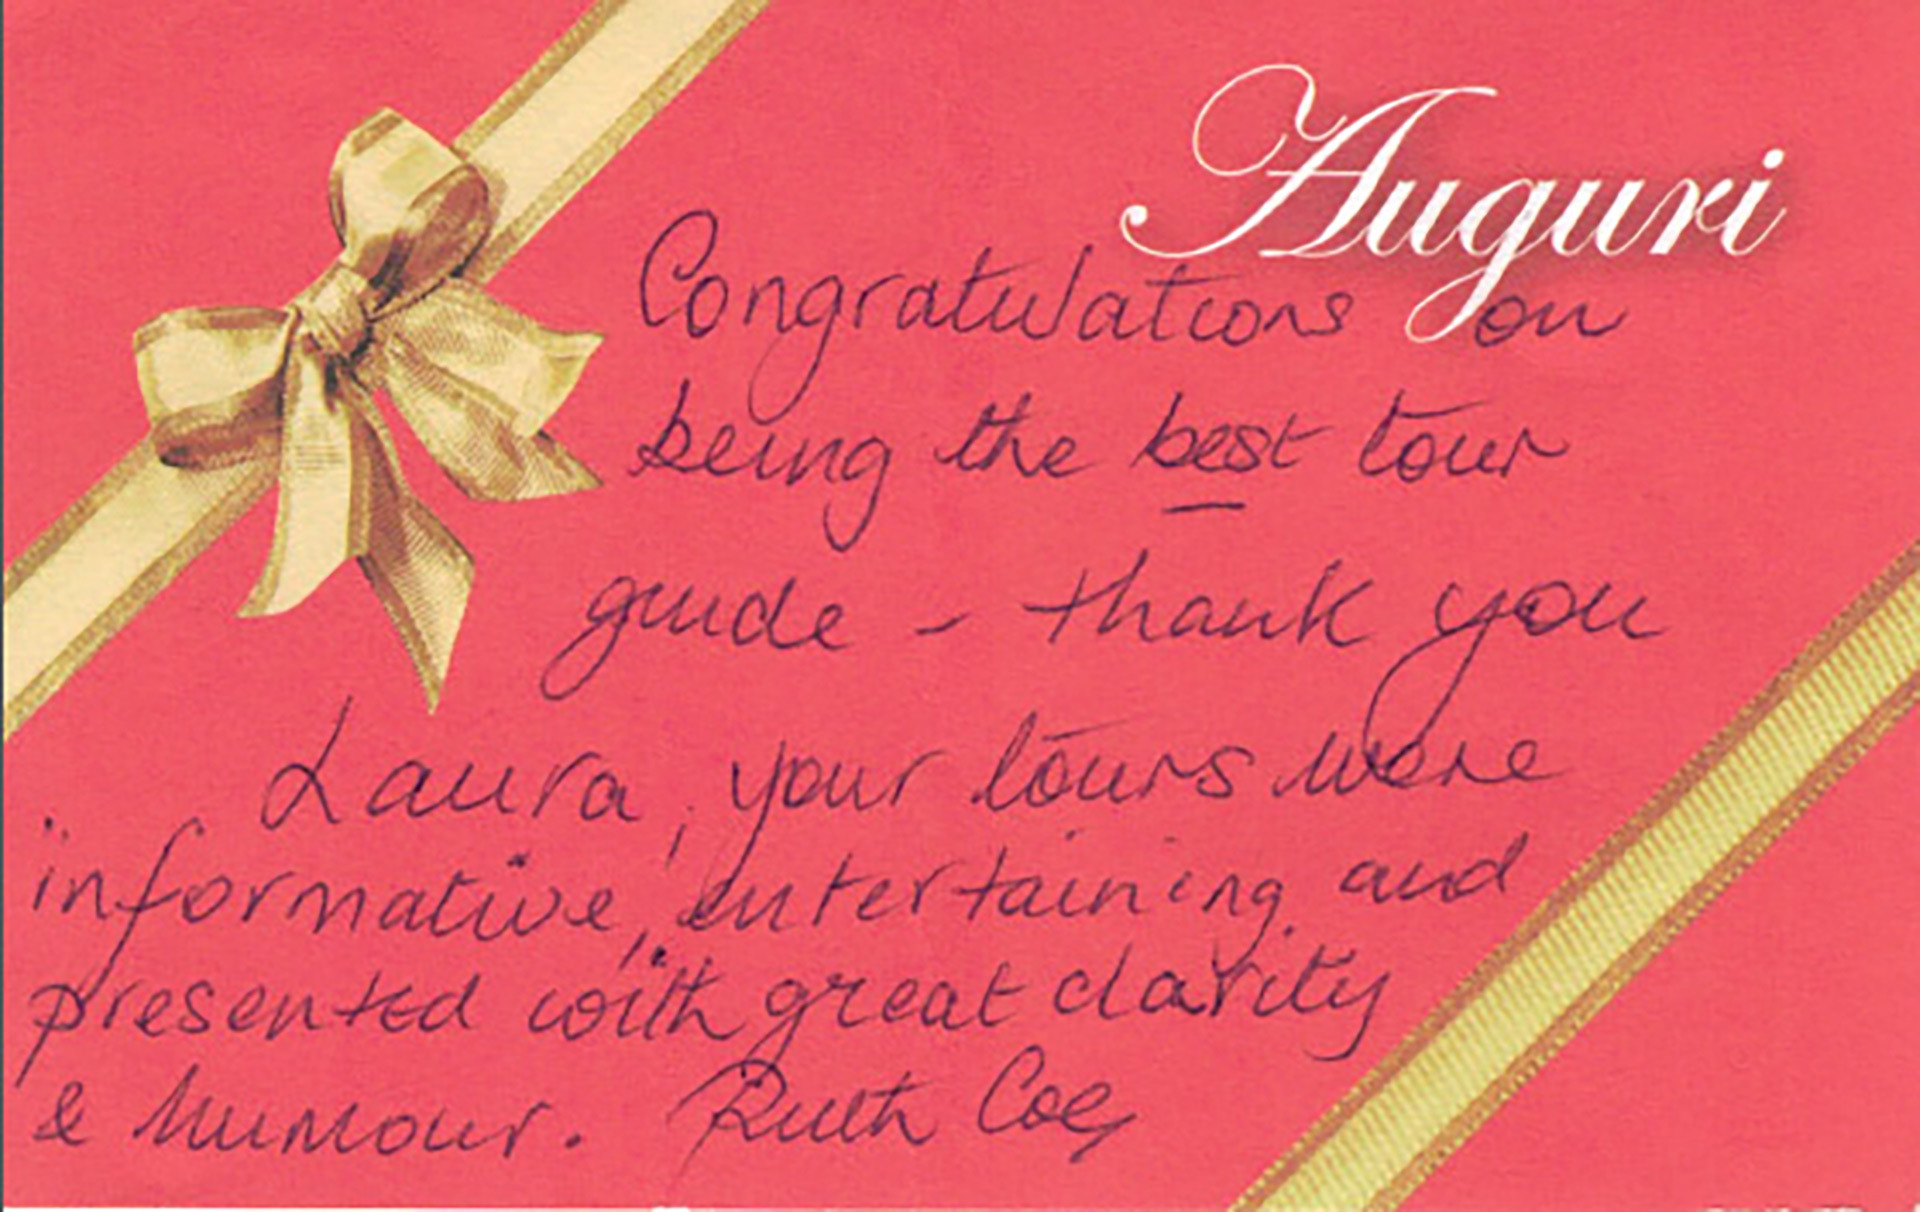 Auguri
Congratulations on
being the best tour
guide - thank you
Laura, your tours were
informative, entertaining and
presented with great clarity
& humour. Ruth Coe